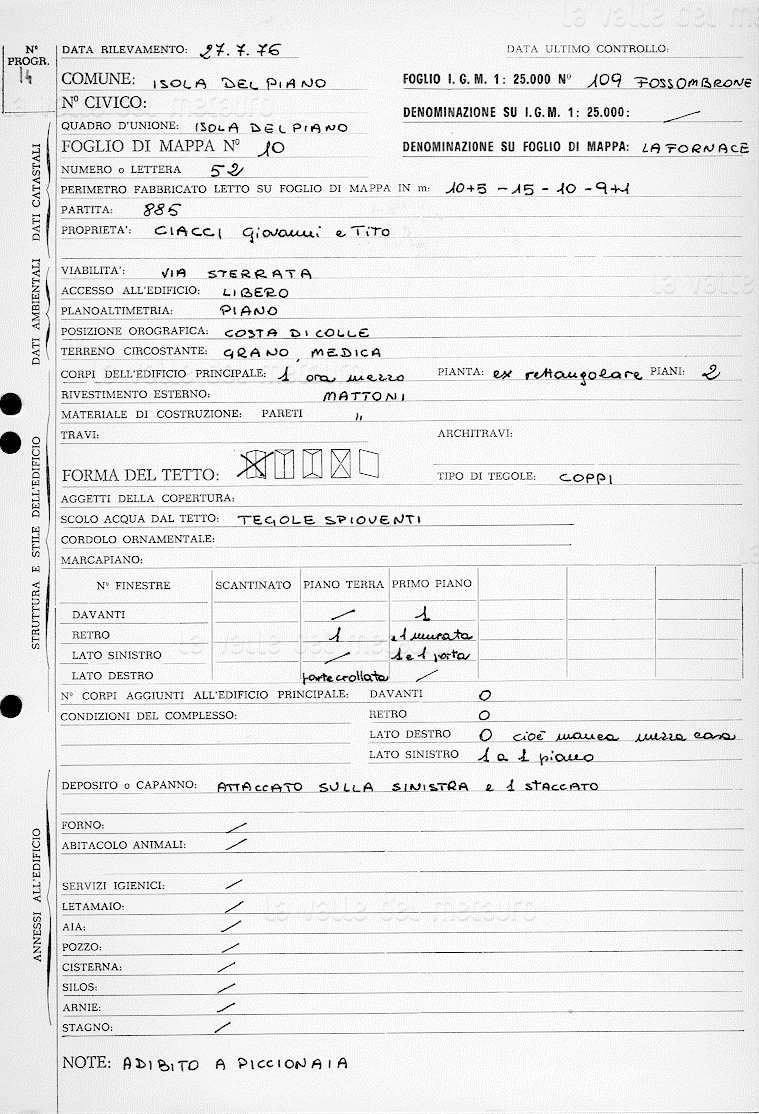 la valle del metauro
Nº PROGR. 14
DATA RILEVAMENTO: 27.7.76 DATA ULTIMO CONTROLLO:
COMUNE: ISOLA DEL PIANO FOGLIO I. G. M. 1: 25.000 Nº 109 FOSSOMBRONE
Nº CIVICO: DENOMINAZIONE SU I.G.M. 1: 25.000: /
QUADRO D'UNIONE: ISOLA DEL PIANO
FOGLIO DI MAPPA Nº 10 DENOMINAZIONE SU FOGLIO DI MAPPA: LA FORNACE
NUMERO o LETTERA 52
PERIMETRO FABBRICATO LETTO SU FOGLIO DI MAPPA IN m: 10+5 - 15 - 10 - 9+1
PARTITA: 885
PROPRIETA': CIACCI Giovanni e TITO
DATI CATASTALI
VIABILITA': VIA STERRATA
ACCESSO ALL'EDIFICIO: LIBERO
PLANOALTIMETRIA: PIANO
POSIZIONE OROGRAFICA: COSTA DI COLLE
TERRENO CIRCOSTANTE: GRANO, MEDICA
DATI AMBIENTALI
CORPI DELL'EDIFICIO PRINCIPALE: 1 ora mezzo PIANTA: ex rettangolare PIANI: 2
RIVESTIMENTO ESTERNO: MATTONI
MATERIALE DI COSTRUZIONE: PARETI "
TRAVI: ARCHITRAVI:
FORMA DEL TETTO: TIPO DI TEGOLE: COPPI
AGGETTI DELLA COPERTURA:
SCOLO ACQUA DAL TETTO: TEGOLE SPIOVENTI
CORDOLO ORNAMENTALE:
MARCAPIANO:
Nº FINESTRE SCANTINATO PIANO TERRA PRIMO PIANO
DAVANTI / 1
RETRO 1 e 1 murata
LATO SINISTRO / 1 e 1 porta
LATO DESTRO parte crollata /
STRUTTURA E STILE DELL'EDIFICIO
Nº CORPI AGGIUNTI ALL'EDIFICIO PRINCIPALE: DAVANTI 0
CONDIZIONI DEL COMPLESSO: RETRO 0
LATO DESTRO 0 cioè manca mezza casa
LATO SINISTRO 1 a 1 piano
DEPOSITO o CAPANNO: ATTACCATO SULLA SINISTRA e 1 STACCATO
FORNO: /
ABITACOLO ANIMALI: /
SERVIZI IGIENICI: /
LETAMAIO: /
AIA: /
POZZO: /
CISTERNA: /
SILOS: /
ARNIE: /
STAGNO: /
ANNESSI ALL'EDIFICIO
NOTE: ADIBITO A PICCIONAIA